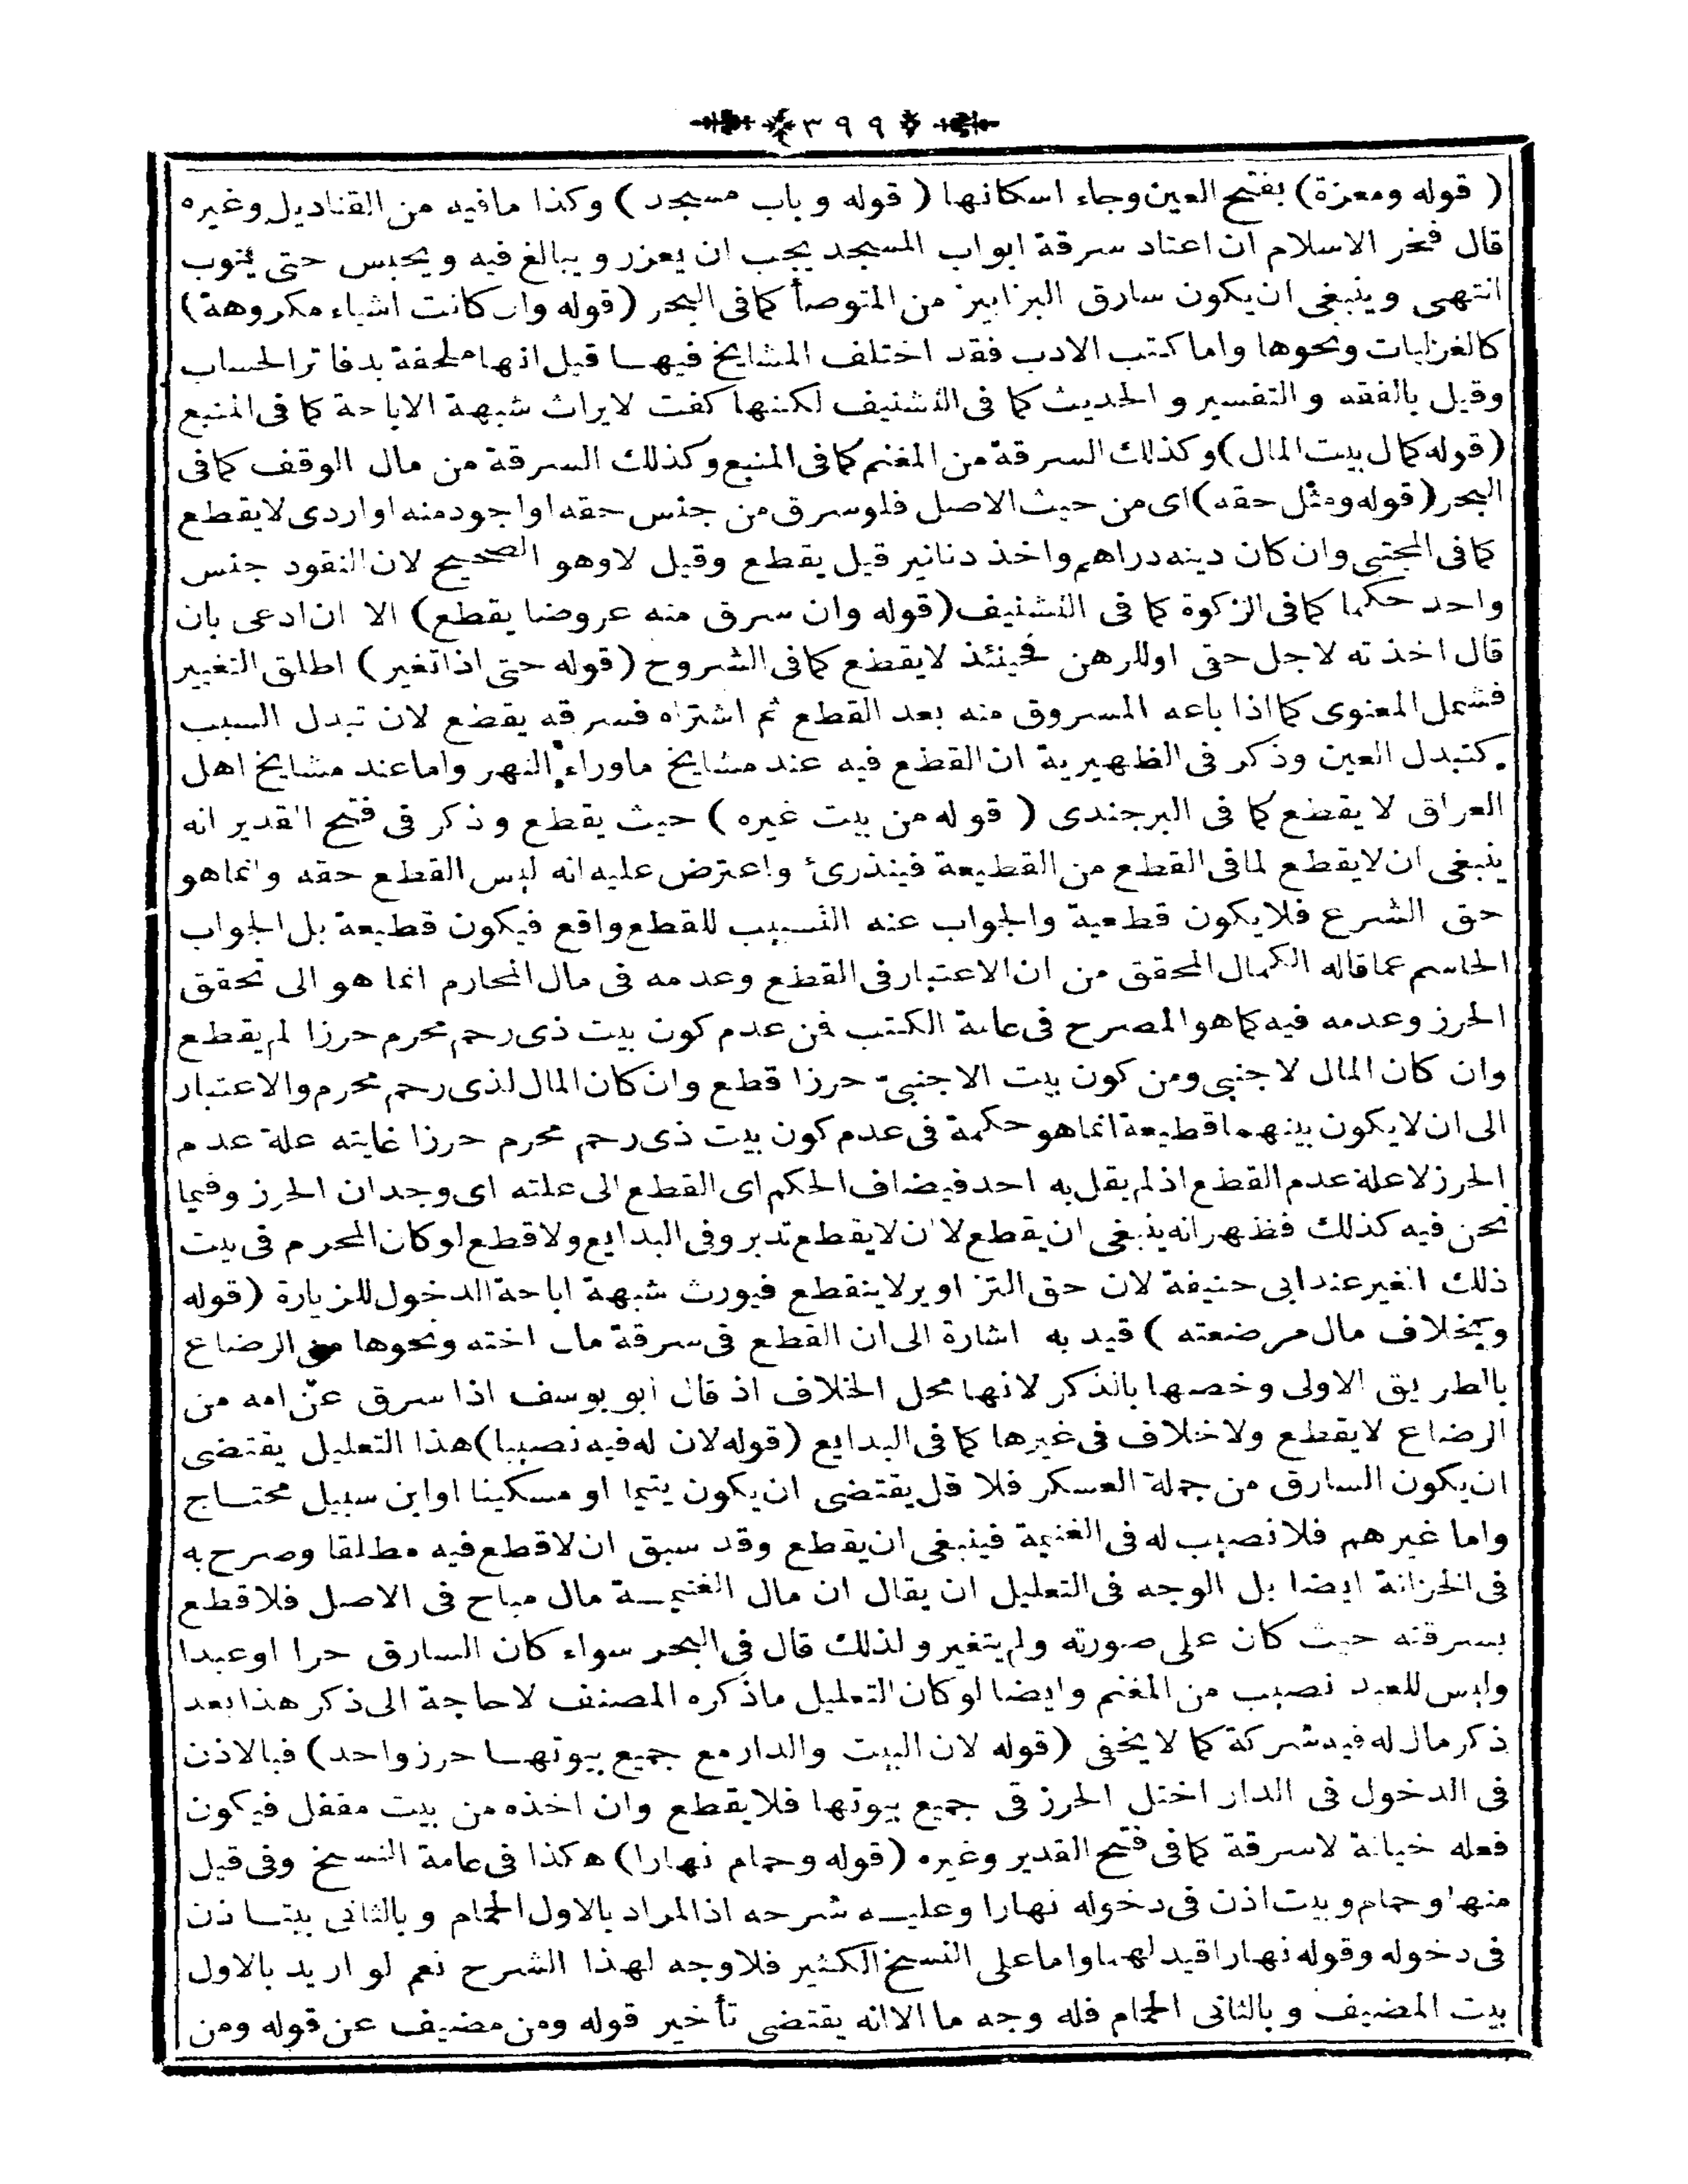 ٣٩٩
( قوله ومعزة) بفتح العين وجاء اسكانها ( قوله و باب مسجد ) وكذا مافيه من القناديل وغيره
قال فخر الاسلام ان اعتاد سرقة ابواب المسجد يجب ان يعزر و يبالغ فيه و يحبس حتى يتوب
انتهى و ينبغى ان يكون سارق البزابيز من المتوضأ كمافى البحر (قوله وان كانت اشياء مكروهة)
كالغزليات ونحوها واما كتب الادب فقد اختلف المشايخ فيهـا قيل انها ملحقة بدفاتر الحساب
وقيل بالفقه و التفسير و الحديث كما فى التشنيف لكنها كفت لايراث شبهة الاباحة كما فى المنبع
(قوله كمال بيت المال) وكذلك السرقة من المغنم كمافى المنبع وكذلك السرقة من مال الوقف كمافى
البحر (قوله ومثل حقه) اى من حيث الاصل فلو سرق من جنس حقه او اجود منه او اردى لايقطع
كمافى المجتبى وان كان دينه دراهم واخذ دنانير قيل يقطع وقيل لاوهو الصحيح لان النقود جنس
واحد حكما كمافى الزكوة كما فى التشنيف (قوله وان سرق منه عروضا يقطع) الا ان ادعى بان
قال اخذته لاجل حقى اوللرهن فحينئذ لايقطع كمافى الشروح (قوله حتى اذاتغير) اطلق التغيير
فشمل المعنوى كما اذا باعه المسروق منه بعد القطع ثم اشتراه فسرقه يقطع لان تبدل السبب
كتبدل العين وذكر فى الظهيرية ان القطع فيه عند مشايخ ماوراء النهر واما عند مشايخ اهل
العراق لا يقطع كما فى البرجندى ( قوله من بيت غيره ) حيث يقطع و ذكر فى فتح القدير انه
ينبغى ان لايقطع لمافى القطع من القطيعة فيندرئ واعترض عليه انه ليس القطع حقه وانما هو
حق الشرع فلايكون قطعية والجواب عنه التسبيب للقطع واقع فيكون قطيعة بل الجواب
الحاسم عما قاله الكمال المحقق من ان الاعتبار فى القطع وعدمه فى مال المحارم انما هو الى تحقق
الحرز وعدمه فيه كما هو المصرح فى عامة الكتب فمن عدم كون بيت ذى رحم محرم حرزا لم يقطع
وان كان المال لاجنبى ومن كون بيت الاجنبى حرزا قطع وان كان المال لذى رحم محرم والاعتبار
الى ان لايكون بينهما قطيعة انما هو حكمة فى عدم كون بيت ذى رحم محرم حرزا غايته علة عدم
الحرز لاعلة عدم القطع اذلم يقل به احد فيضاف الحكم اى القطع الى علته اى وجدان الحرز وفيما
نحن فيه كذلك فظهر انه ينبغى ان يقطع لا ان لايقطع تدبر وفى البدايع ولاقطع لوكان المحرم فى بيت
ذلك الغير عند ابى حنيفة لان حق التزاوير لاينقطع فيورث شبهة اباحة الدخول للزيارة (قوله
وبخلاف مال مرضعته ) قيد به اشارة الى ان القطع فى سرقة مال اخته ونحوها من الرضاع
بالطريق الاولى وخصها بالذكر لانها محل الخلاف اذ قال ابو يوسف اذا سرق عن امه من
الرضاع لايقطع ولاخلاف فى غيرها كما فى البدايع (قوله لان له فيه نصيبا) هذا التعليل يقتضى
ان يكون السارق من جملة العسكر فلا قل يقتضى ان يكون يتيما او مسكينا او ابن سبيل محتـاج
واما غيرهم فلانصيب له فى الغنيمة فينبغى ان يقطع وقد سبق ان لاقطع فيه مطلقا وصرح به
فى الخزانة ايضا بل الوجه فى التعليل ان يقال ان مال الغنيمـة مال مباح فى الاصل فلاقطع
بسرقته حيث كان على صورته ولم يتغير ولذلك قال فى البحر سواء كان السارق حرا اوعبدا
وليس للعبد نصيب من المغنم وايضا لوكان التعليل ماذكره المصنف لاحاجة الى ذكر هذا بعد
ذكر مال له فيه شركة كما لا يخفى (قوله لان البيت والدار مع جميع بيوتهـا حرز واحد) فبالاذن
فى الدخول فى الدار اختل الحرز فى جميع بيوتها فلايقطع وان اخذه من بيت مقفل فيكون
فعله خيانة لاسرقة كمافى فتح القدير وغيره (قوله وحمام نهارا) هكذا فى عامة النسخ وفى قيل
منها وحمام و بيت اذن فى دخوله نهارا وعليـه شرحه اذالمراد بالاول الحمام و بالثانى بيتـاذن
فى دخوله وقوله نهارا قيد لهما واما على النسخ الكثير فلاوجه لهذا الشرح نعم لو اريد بالاول
بيت المضيف و بالثانى الحمام فله وجه ما الاانه يقتضى تأخير قوله ومن مضيف عن قوله ومن